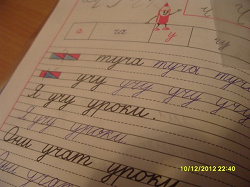 а ча у
туча туча ту
учу учу учу учу
Я учу уроки.
Я учу уроки
Они учат уроки
Они
10/12/2012 22:40